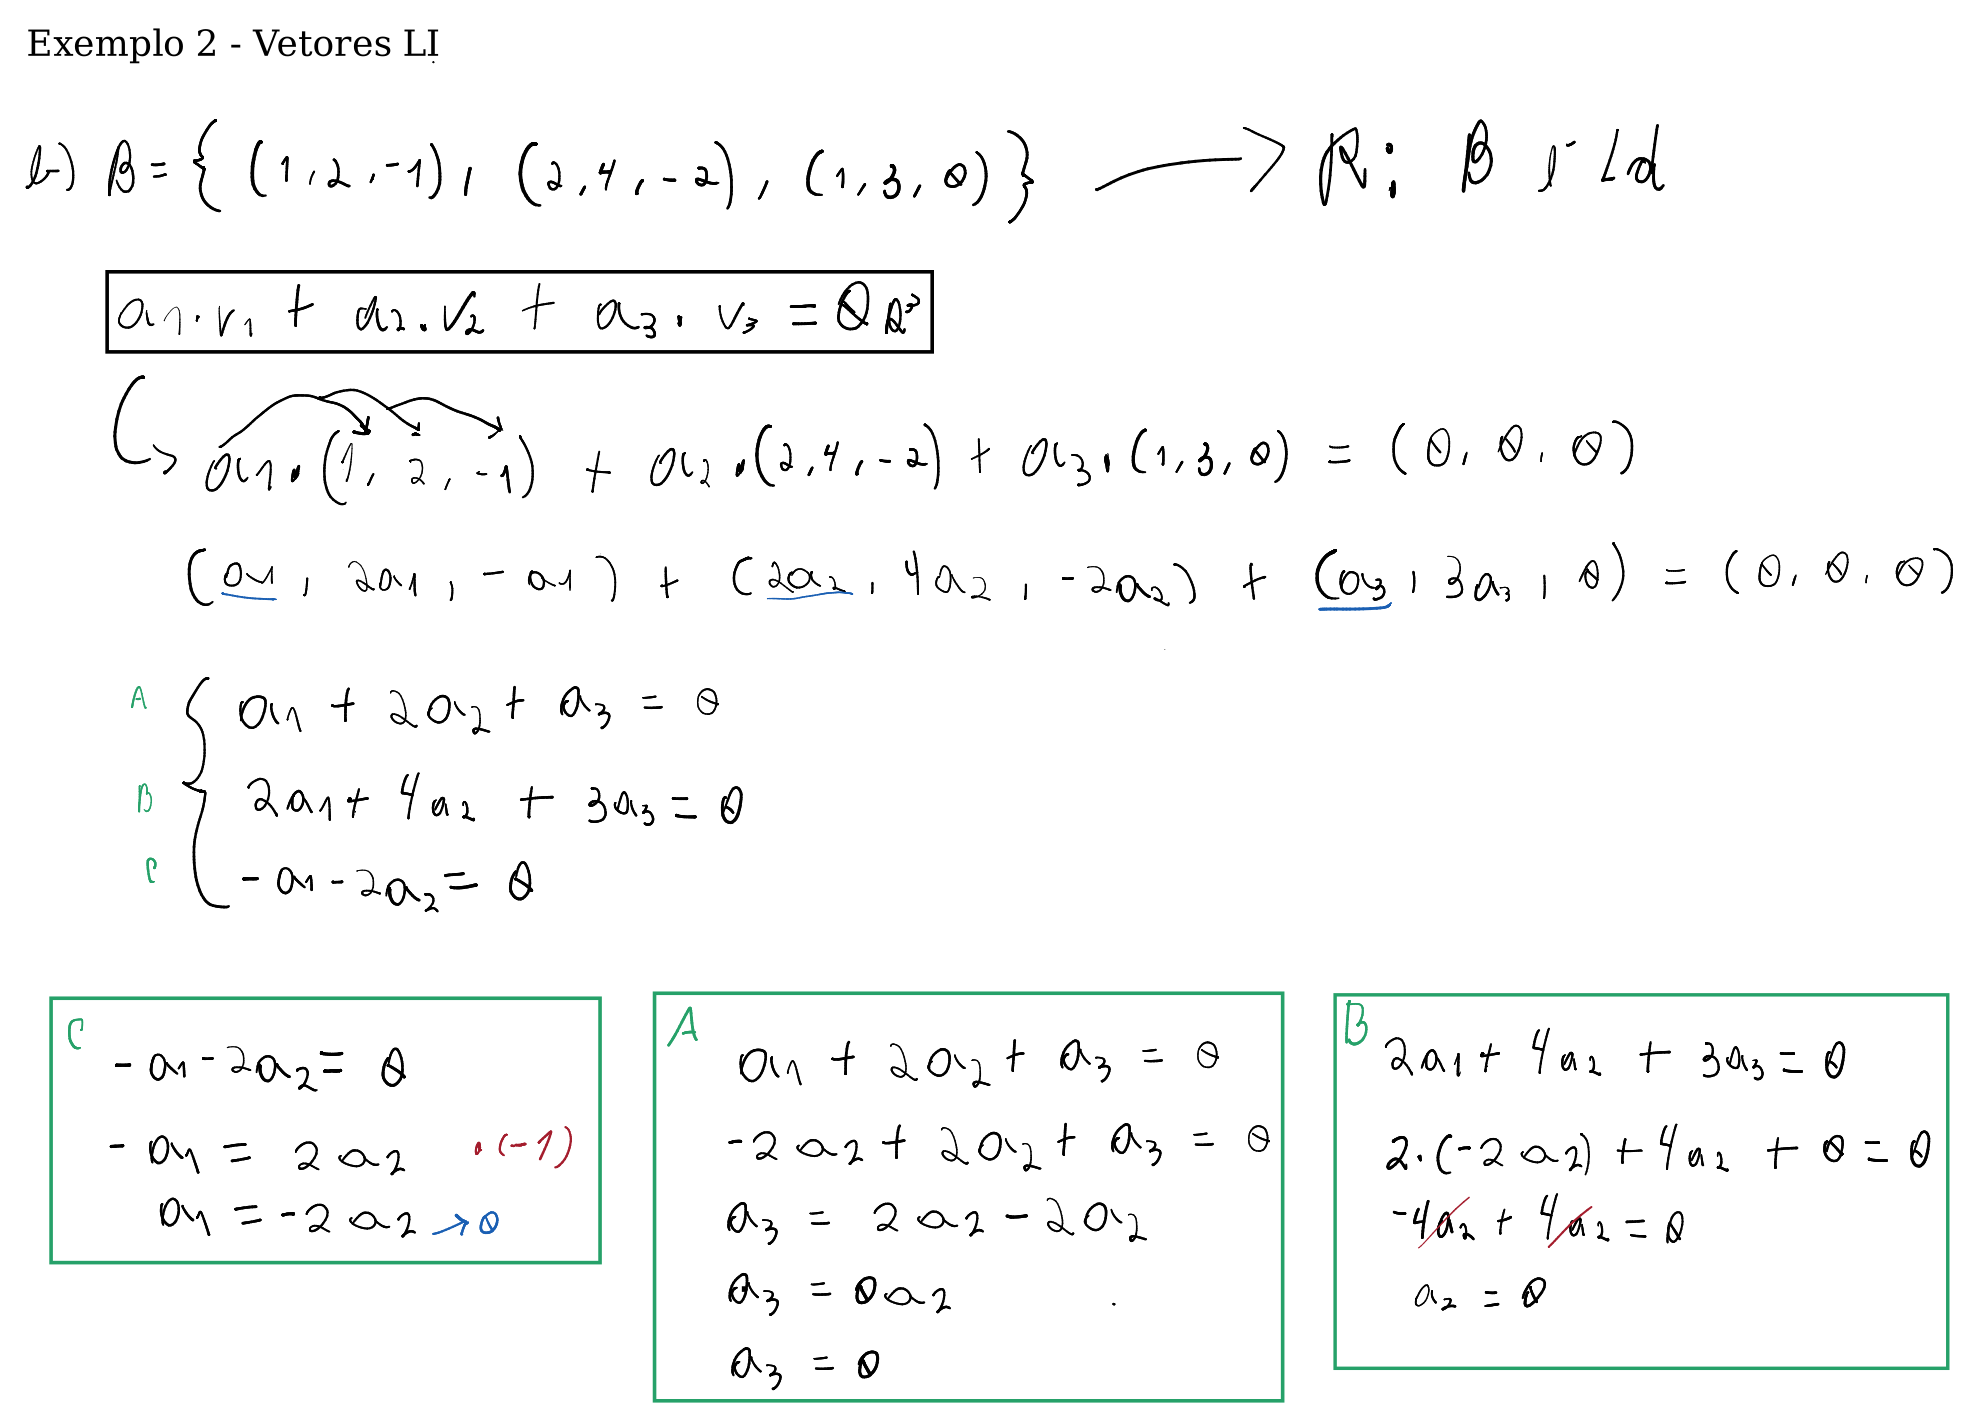 Exemplo 2 - Vetores LI
b) B = { (1, 2, -1), (2, 4, -2), (1, 3, 0) } → R: B é Ld
a1 · v1 + a2 · v2 + a3 · v3 = 0 R³
a1 · (1, 2, -1) + a2 · (2, 4, -2) + a3 · (1, 3, 0) = (0, 0, 0)
(a1, 2a1, -a1) + (2a2, 4a2, -2a2) + (a3, 3a3, 0) = (0, 0, 0)
A a1 + 2a2 + a3 = 0
B 2a1 + 4a2 + 3a3 = 0
C -a1 - 2a2 = 0
C
-a1 - 2a2 = 0
-a1 = 2a2 · (-1)
a1 = -2a2 → 0
A
a1 + 2a2 + a3 = 0
-2a2 + 2a2 + a3 = 0
a3 = 2a2 - 2a2
a3 = 0a2
a3 = 0
B
2a1 + 4a2 + 3a3 = 0
2 · (-2a2) + 4a2 + 0 = 0
-4a2 + 4a2 = 0
a2 = 0